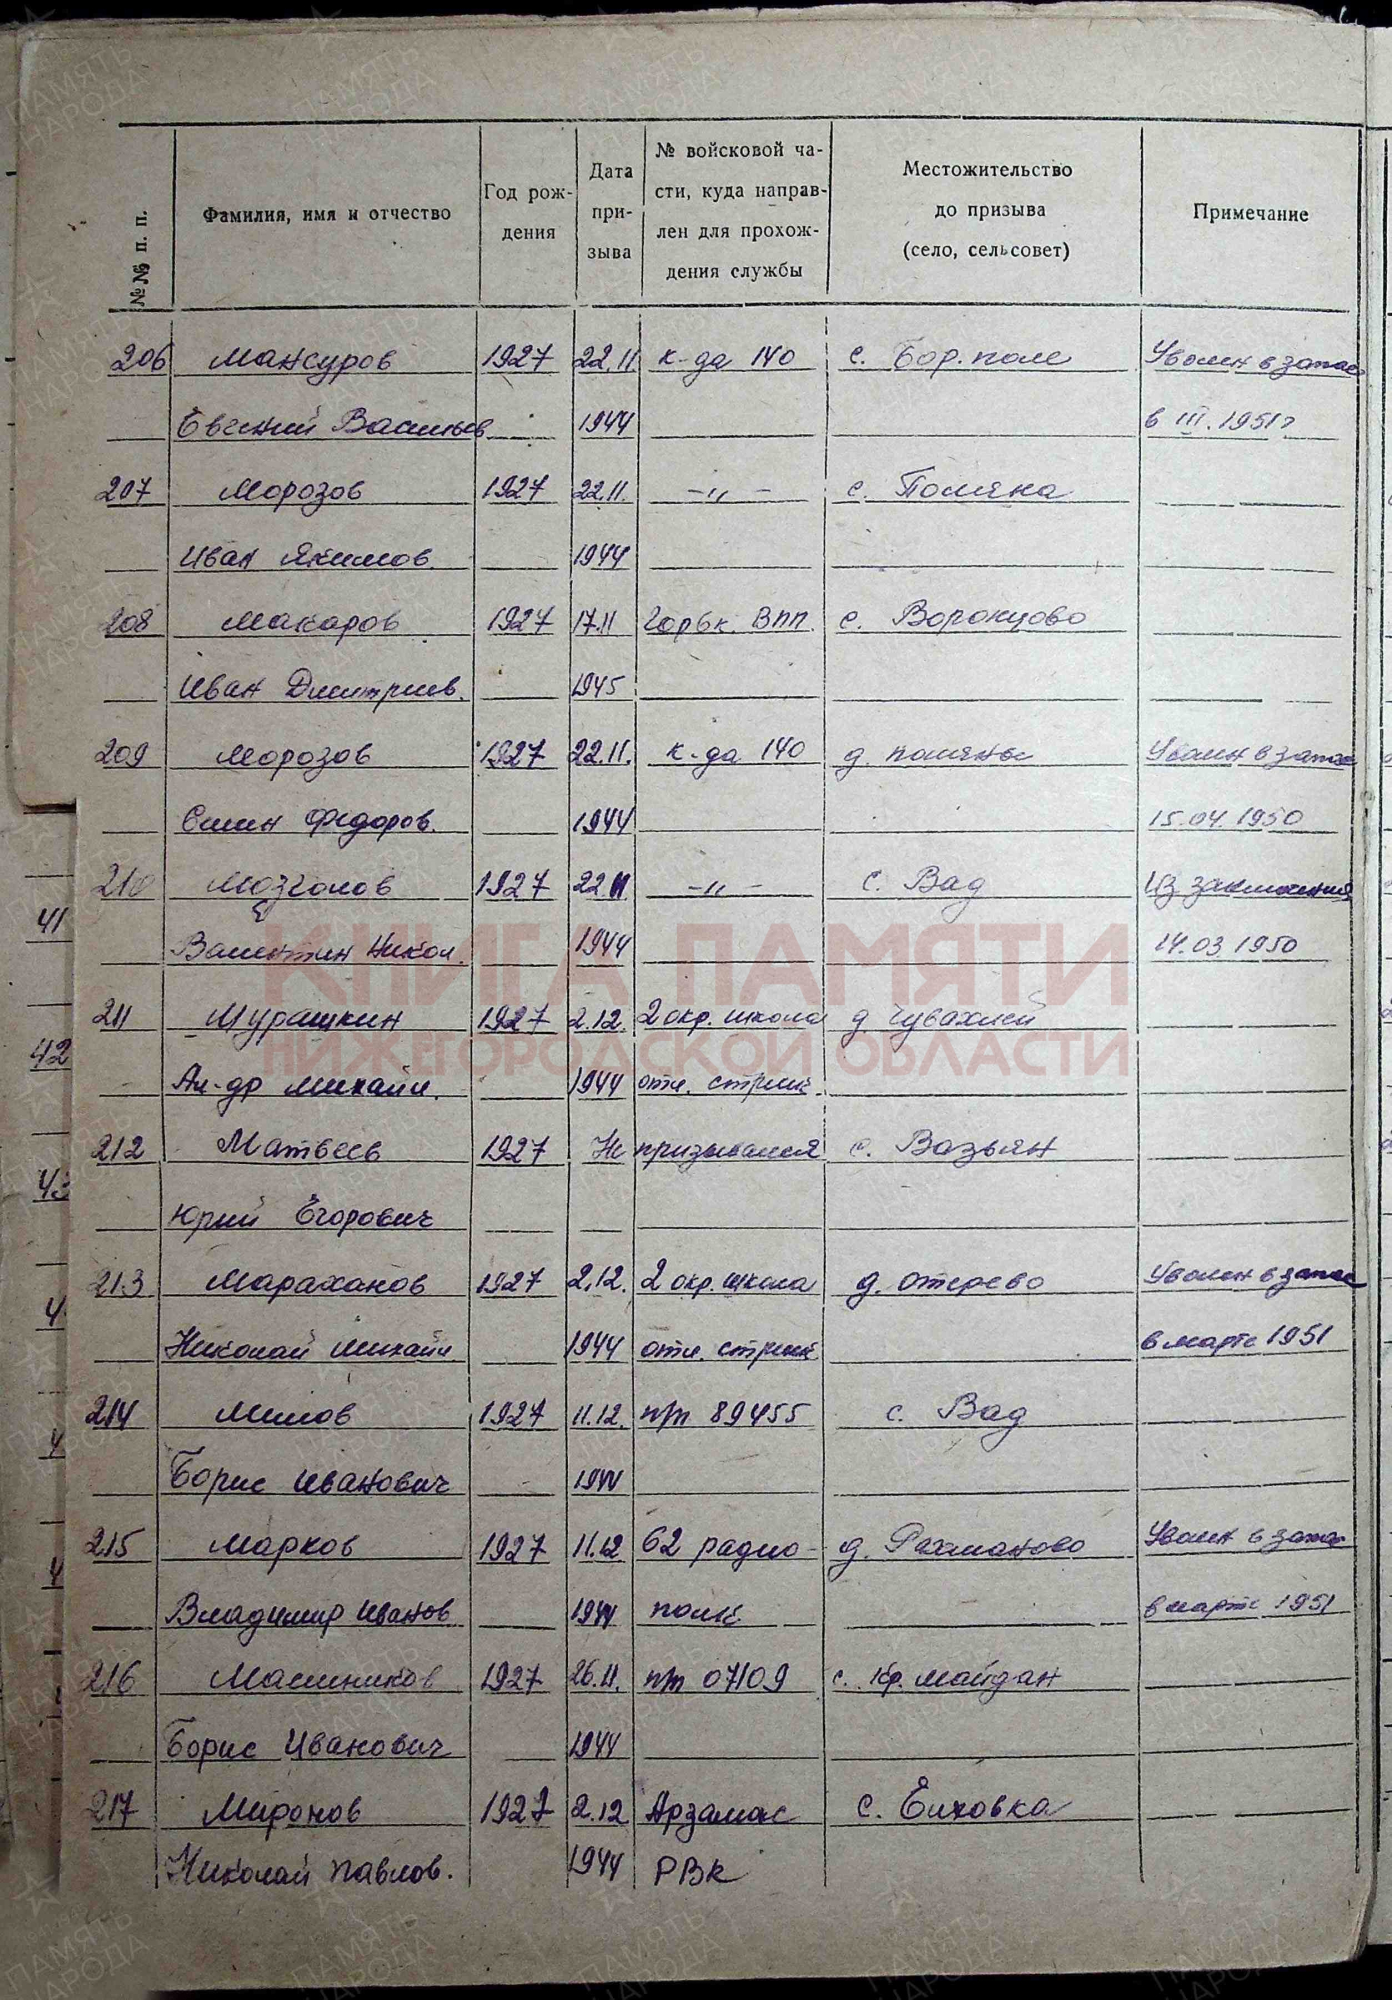 №№ п. п.
Фамилия, имя и отчество
Год рож-
дения
Дата
при-
зыва
№ войсковой ча-
сти, куда направ-
лен для прохож-
дения службы
Местожительство
до призыва
(село, сельсовет)
Примечание
206 Мансуров 1927 22.11 к-да 140 с. Бор. поле Уволен в запас
Евгений Васильев 1944 в III. 1951г
207 Морозов 1927 22.11. —„— с. Поляна
Иван Якимов. 1944
208 Макаров 1927 17.11 Горьк. ВПП. с. Воронцово
Иван Дмитриев. 1945
209 Морозов 1927 22.11. к-да 140 д. поляны Уволен в запас
Семен Федоров. 1944 15.04.1950
210 Мозголов 1927 22.11 —„— с. Вад Из заключения
Валентин Никол. 1944 14.03 1950
211 Мурашкин 1927 2.12. 2 окр. школа д Чувахлей
Ал-др Михайл. 1944 отл. стрелк.
212 Матвеев 1927 Не призывался с. Вазьян
Юрий Егорович
213 Мараханов 1927 2.12. 2 окр. школа д. Отерево Уволен в запас
Николай Михайл. 1944 отл. стрелк в марте 1951
214 Милов 1927 11.12. п/п 89455 с. Вад
Борис Иванович 1944
215 Марков 1927 11.12 62 радио- д. Рахманово Уволен в запас
Владимир Иванов 1944 полк в марте 1951
216 Масленников 1927 26.11. п/п 07109 с. Кр. майдан
Борис Иванович 1944
217 Миронов 1927 2.12 Арзамас с. Елховка
Николай Павлов. 1944 РВК
41
42
43
КНИГА ПАМЯТИ
НИЖЕГОРОДСКОЙ ОБЛАСТИ
ПАМЯТЬ
НАРОДА